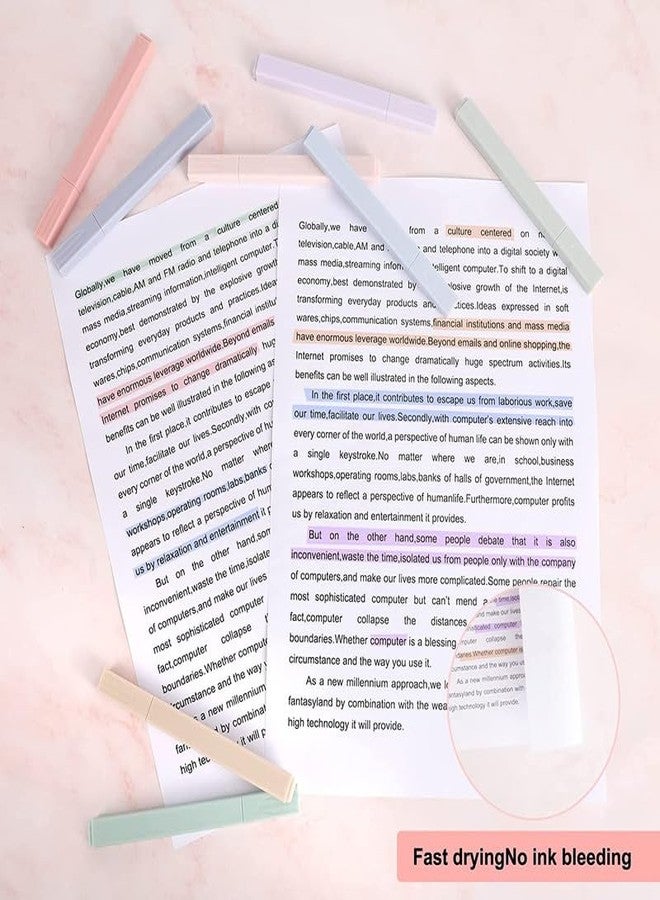 Globally,we have moved from a culture centered
television,cable,AM and FM radio and telephone into a di
mass media,streaming information,intelligent computer.T
economy,best demonstrated by the explosive growth
transforming everyday products and practices.Ideas
wares,chips,communication systems,financial institut
have enormous leverage worldwide.Beyond emails
Internet promises to change dramatically hug
benefits can be well illustrated in the following as
In the first place,it contributes to escape
our time,facilitate our lives.Secondly,with co
every corner of the world,a perspective of hu
a single keystroke.No matter where
workshops,operating rooms,labs,banks
appears to reflect a perspective of hum
us by relaxation and entertainment it p
But on the other hand,som
inconvenient,waste the time,isolate
of computers,and make our lives
most sophisticated computer
fact,computer collapse
boundaries.Whether comput
circumstance and the way
a new millennium
by combina
high it will p
Globally,we have from a culture centered on
television,cable,AM and and telephone into a digital society
mass media,streaming infor elligent computer.To shift to a digital
economy,best demonstrated by plosive growth of the Internet,is
transforming everyday products and ctices.Ideas expressed in soft
wares,chips,communication systems,financial institutions and mass media
have enormous leverage worldwide.Beyond emails and online shopping,the
Internet promises to change dramatically huge spectrum activities.Its
benefits can be well illustrated in the following aspects.
In the first place,it contributes to escape us from laborious work,save
our time,facilitate our lives.Secondly,with computer's extensive reach into
every corner of the world,a perspective of human life can be shown only with
a single keystroke.No matter where we are,in school,business
workshops,operating rooms,labs,banks of halls of government,the Internet
appears to reflect a perspective of humanlife.Furthermore,computer profits
us by relaxation and entertainment it provides.
But on the other hand,some people debate that it is also
inconvenient,waste the time,isolated us from people only with the company
of computers,and make our lives more complicated.Some people repair the
most sophisticated computer but can't mend a
fact,computer collapse the distances
boundaries.Whether computer is a blessing
circumstance and the way you use it.
As a new millennium approach,we
fantasyland by combination with the wea
high technology it will provide.
and make our lives
computer
collapse the
Whether computer is
circumstance and the way you
As a new millennium appro
fantasyland by combination with
high technology it will provide.
Fast dryingNo ink bleeding